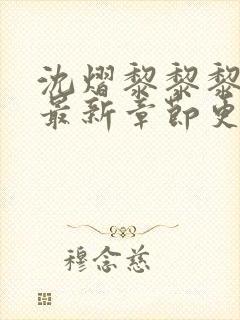 沈熠黎黎黎
最新章节更
穆念慈